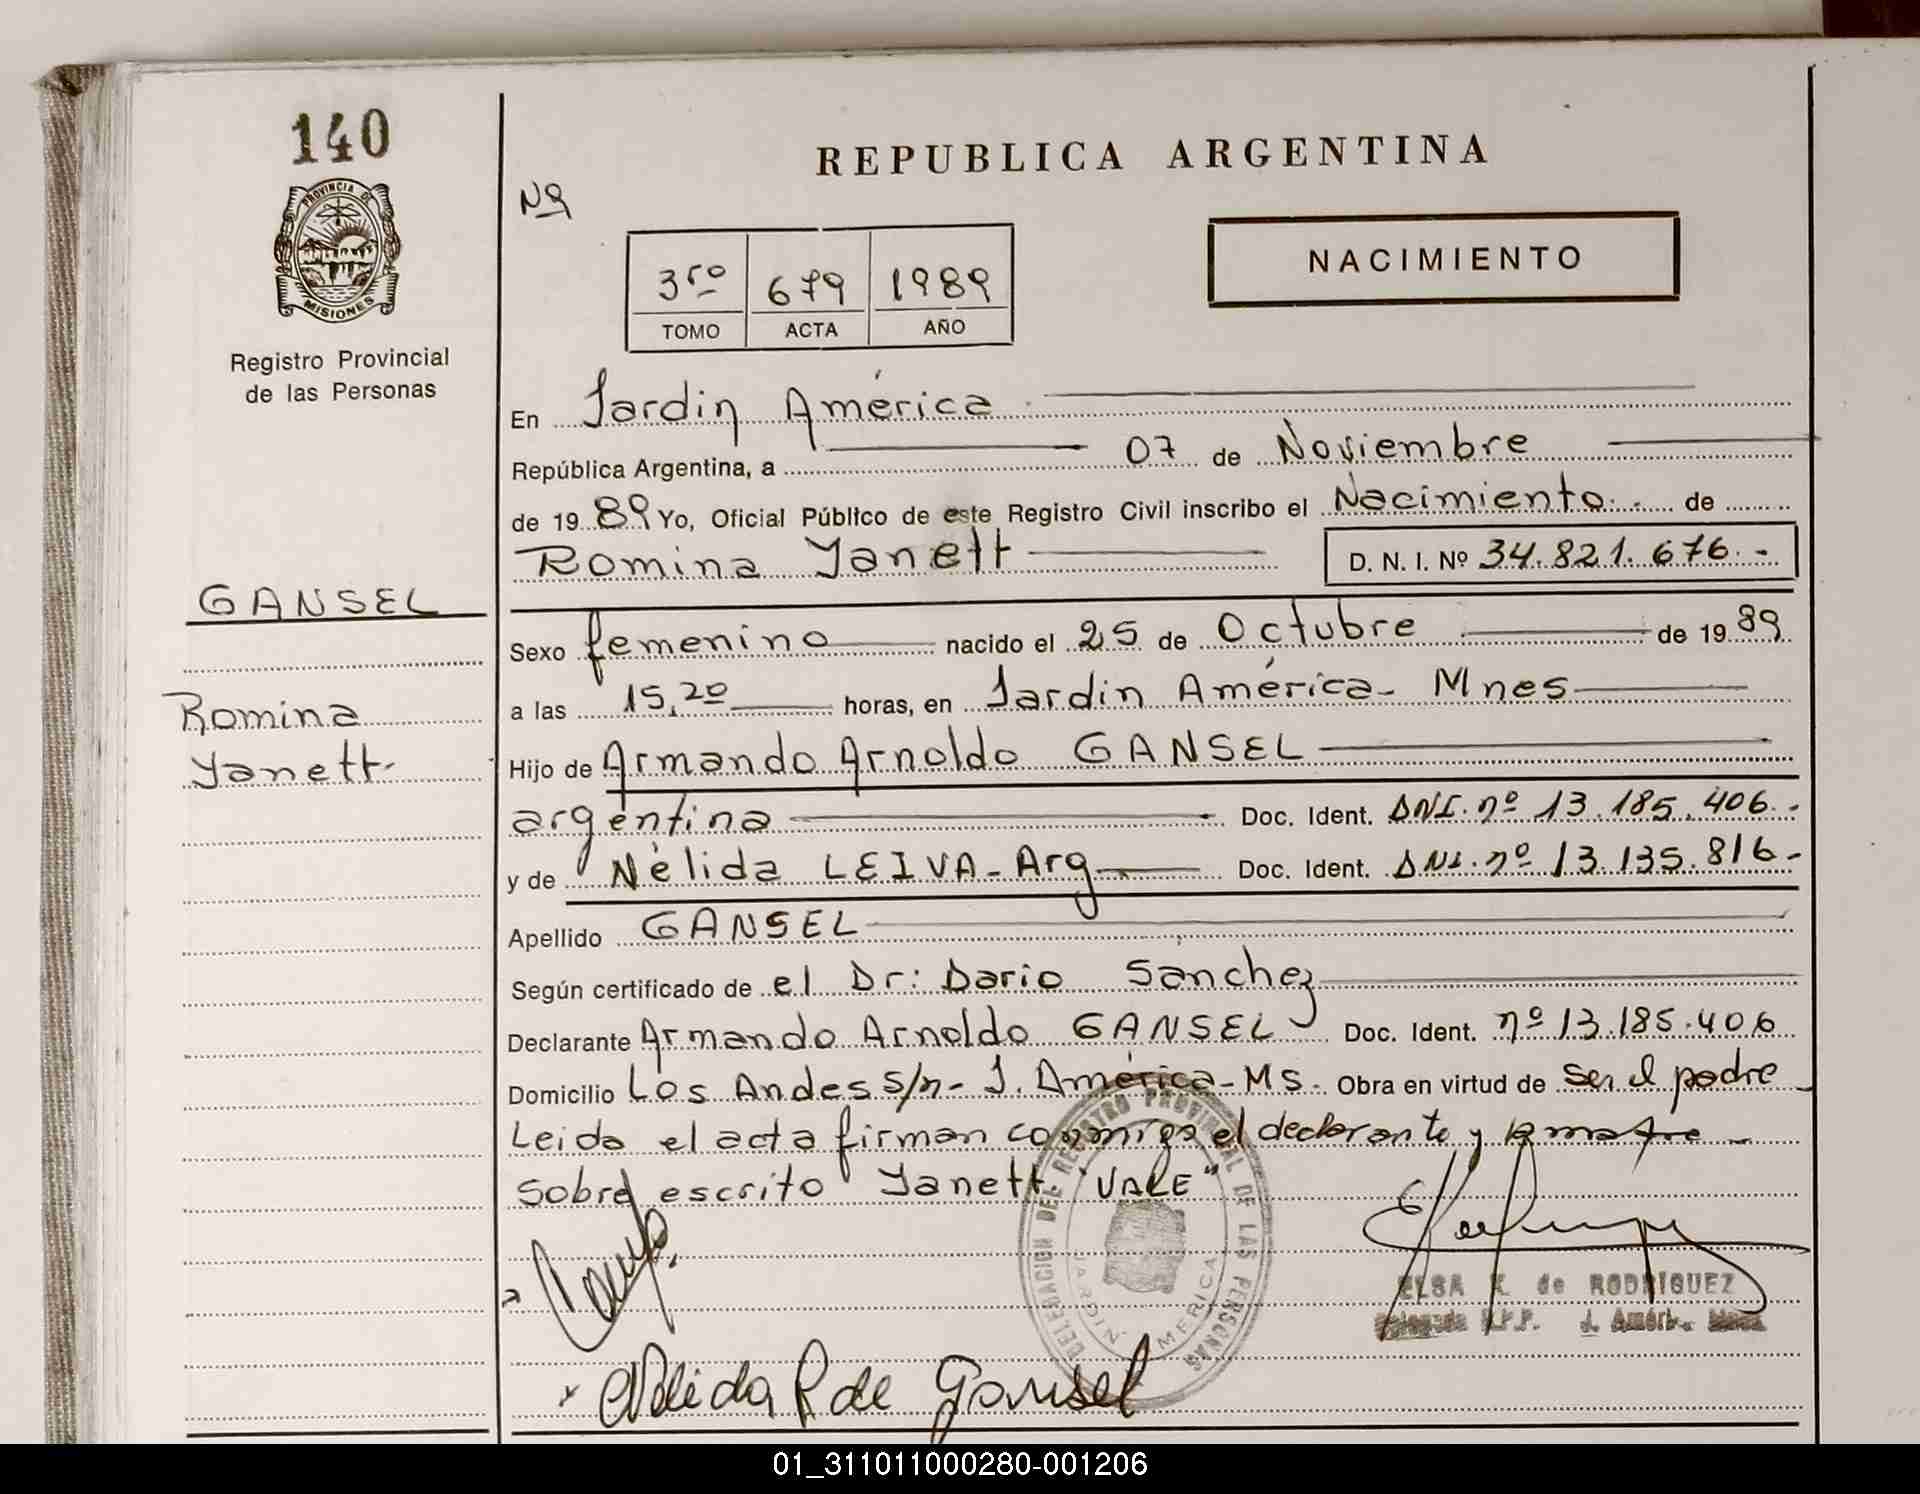 140
PROVINCIA DE
MISIONES
Registro Provincial
de las Personas
REPUBLICA ARGENTINA
Nº
NACIMIENTO
3ro 679 1989
TOMO ACTA AÑO
En Jardin América
República Argentina, a 07 de Noviembre
de 1989 Yo, Oficial Público de este Registro Civil inscribo el Nacimiento de
Romina Yanett D. N. I. Nº 34.821.676.-
GANSEL
Romina
Yanett
Sexo femenino nacido el 25 de Octubre de 1989
a las 15,20 horas, en Jardin América- Mnes
Hijo de Armando Arnoldo GANSEL
argentina Doc. Ident. DNI. nº 13.185.406.-
y de Nélida LEIVA-Arg Doc. Ident. DNI. nº 13.135.816-
Apellido GANSEL
Según certificado de el Dr: Dario Sánchez
Declarante Armando Arnoldo GANSEL Doc. Ident. nº 13.185.406
Domicilio Los Andes s/n- J. América-Ms. Obra en virtud de ser el padre
Leida el acta firman conmigo el declarante y la madre
Sobre escrito Yanett "VALE"
DELEGACION DEL REGISTRO PROVINCIAL DE LAS PERSONAS
JARDIN AMERICA
ELSA K. de RODRIGUEZ
Delegada R.P.P. J. Améri.
Nélida L de Gansel
01_311011000280-001206